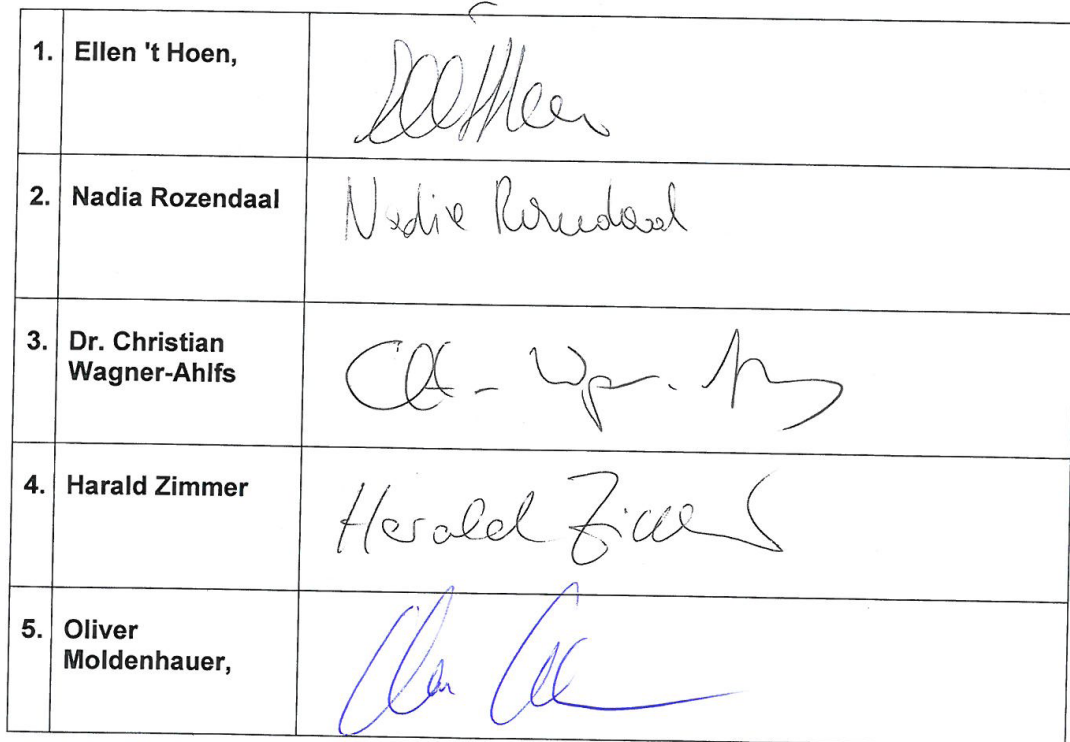 1. Ellen 't Hoen,
2. Nadia Rozendaal Nadia Rozendaal
3. Dr. Christian
Wagner-Ahlfs
4. Harald Zimmer Harald Zimmer
5. Oliver
Moldenhauer,